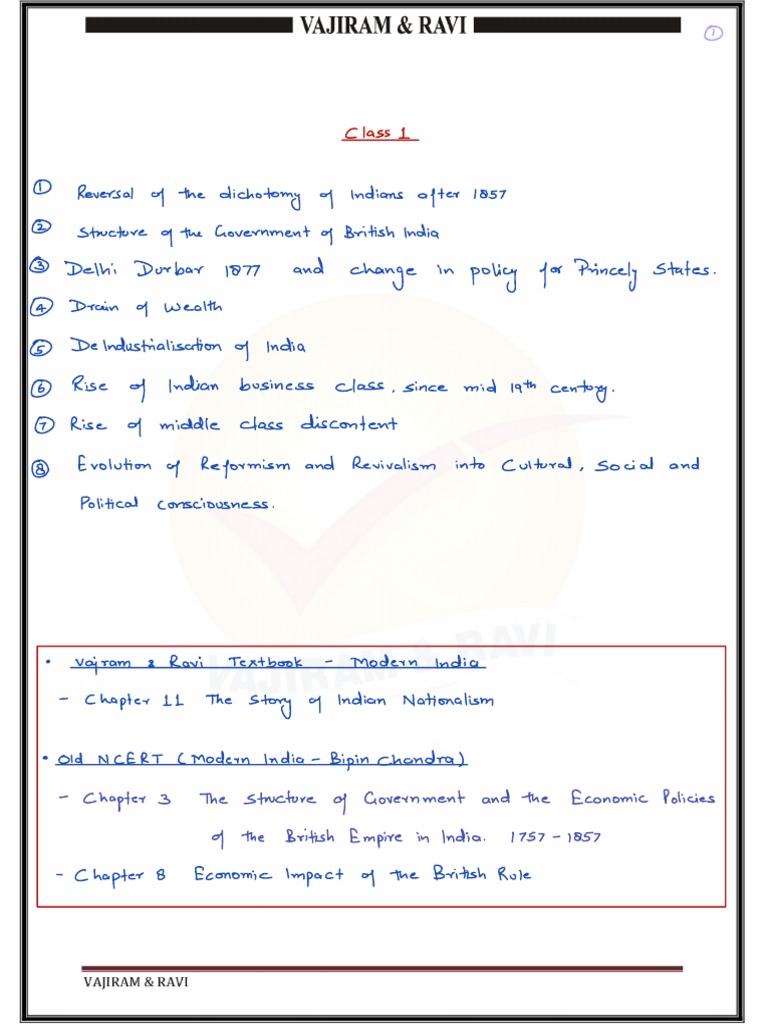 VAJIRAM & RAVI
1
Class 1
1 Reversal of the dichotomy of Indians after 1857
2 Structure of the Government of British India
3 Delhi Durbar 1877 and change in policy for Princely States.
4 Drain of Wealth
5 DeIndustrialisation of India
6 Rise of Indian business class, since mid 19th century.
7 Rise of middle class discontent
8 Evolution of Reformism and Revivalism into Cultural, Social and
Political consciousness.
VAJIRAM & RAVI
• Vajram & Ravi Textbook - Modern India
- Chapter 11 The Story of Indian Nationalism
• Old NCERT (Modern India - Bipin Chandra)
- Chapter 3 The Structure of Government and the Economic Policies
of the British Empire in India. 1757 - 1857
- Chapter 8 Economic Impact of the British Rule
VAJIRAM & RAVI